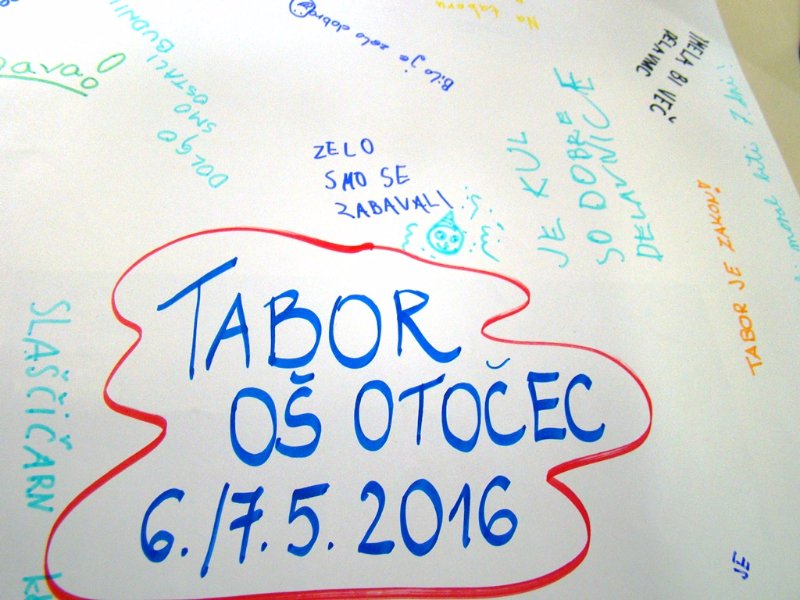 Na taboru
Bilo je zelo dobro
DOLGO
SMO
OSTALI BUDNI
ZELO
SMO SE
ZABAVALI
JE KUL
SO DOBRE
DELAVNICE
IMELA BI VEČ
DELAVNIC
TABOR JE ZAKON!
biti 7 dni!
SLAŠČIČARN
TABOR
OŠ OTOČEC
6./7.5.2016
JE